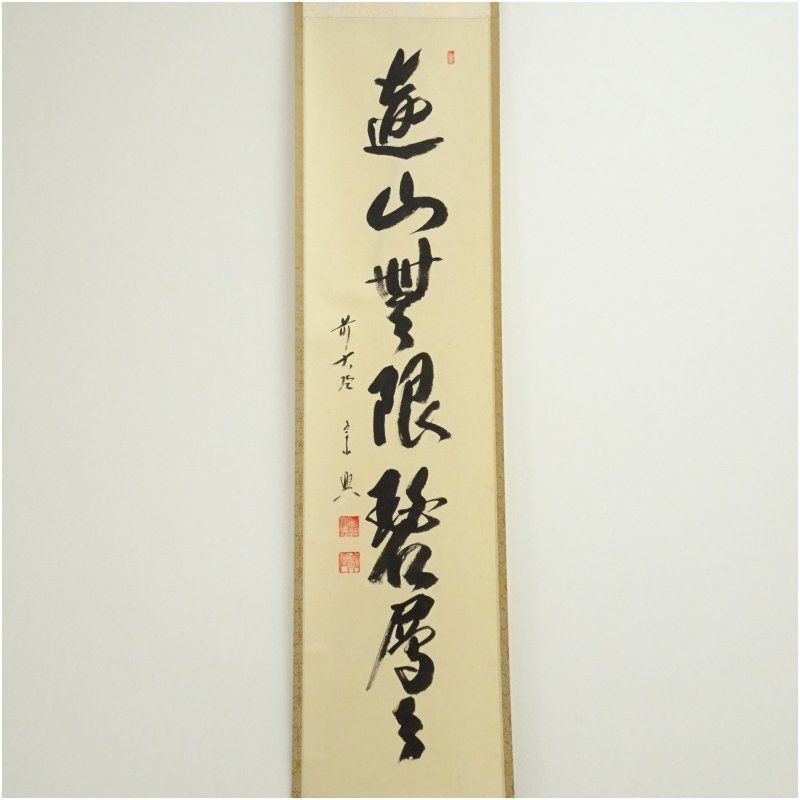 遠山無限碧層々
前大徳
宗興